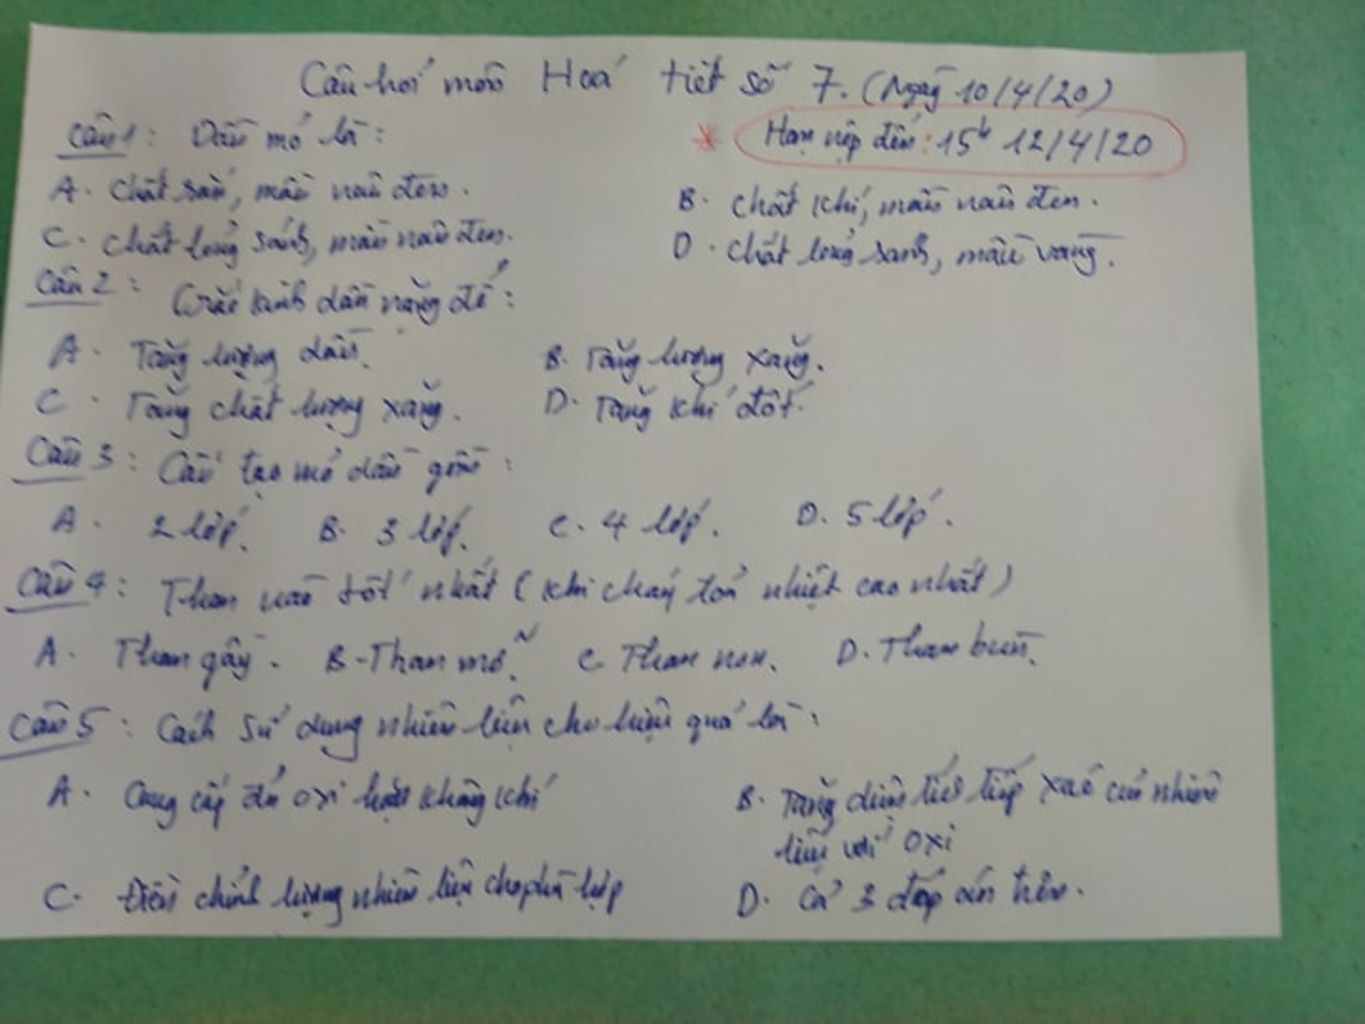 Câu hỏi môn Hoá tiết số 7. (Ngày 10/4/20)
* Hạn nộp đến: 15h 12/4/20
Câu 1: Dầu mỏ là:
A. Chất rắn, màu nâu đen.
B. Chất khí, màu nâu đen.
C. Chất lỏng sánh, màu nâu đen.
D. Chất lỏng sánh, màu vàng.
Câu 2: Crắc kinh dầu nặng để:
A. Tăng lượng dầu.
B. Tăng lượng xăng.
C. Tăng chất lượng xăng.
D. Tăng khí đốt.
Câu 3: Cấu tạo mỏ dầu gồm:
A. 2 lớp. B. 3 lớp. C. 4 lớp. D. 5 lớp.
Câu 4: Than nào tốt nhất (khi cháy toả nhiệt cao nhất)
A. Than gầy. B. Than mỡ. C. Than non. D. Than bùn.
Câu 5: Cách sử dụng nhiên liệu cho hiệu quả là:
A. Cung cấp đủ oxi hoặc không khí
B. Tăng diện tích tiếp xúc của nhiên
liệu với oxi
C. Điều chỉnh lượng nhiên liệu cho phù hợp
D. Cả 3 đáp án trên.